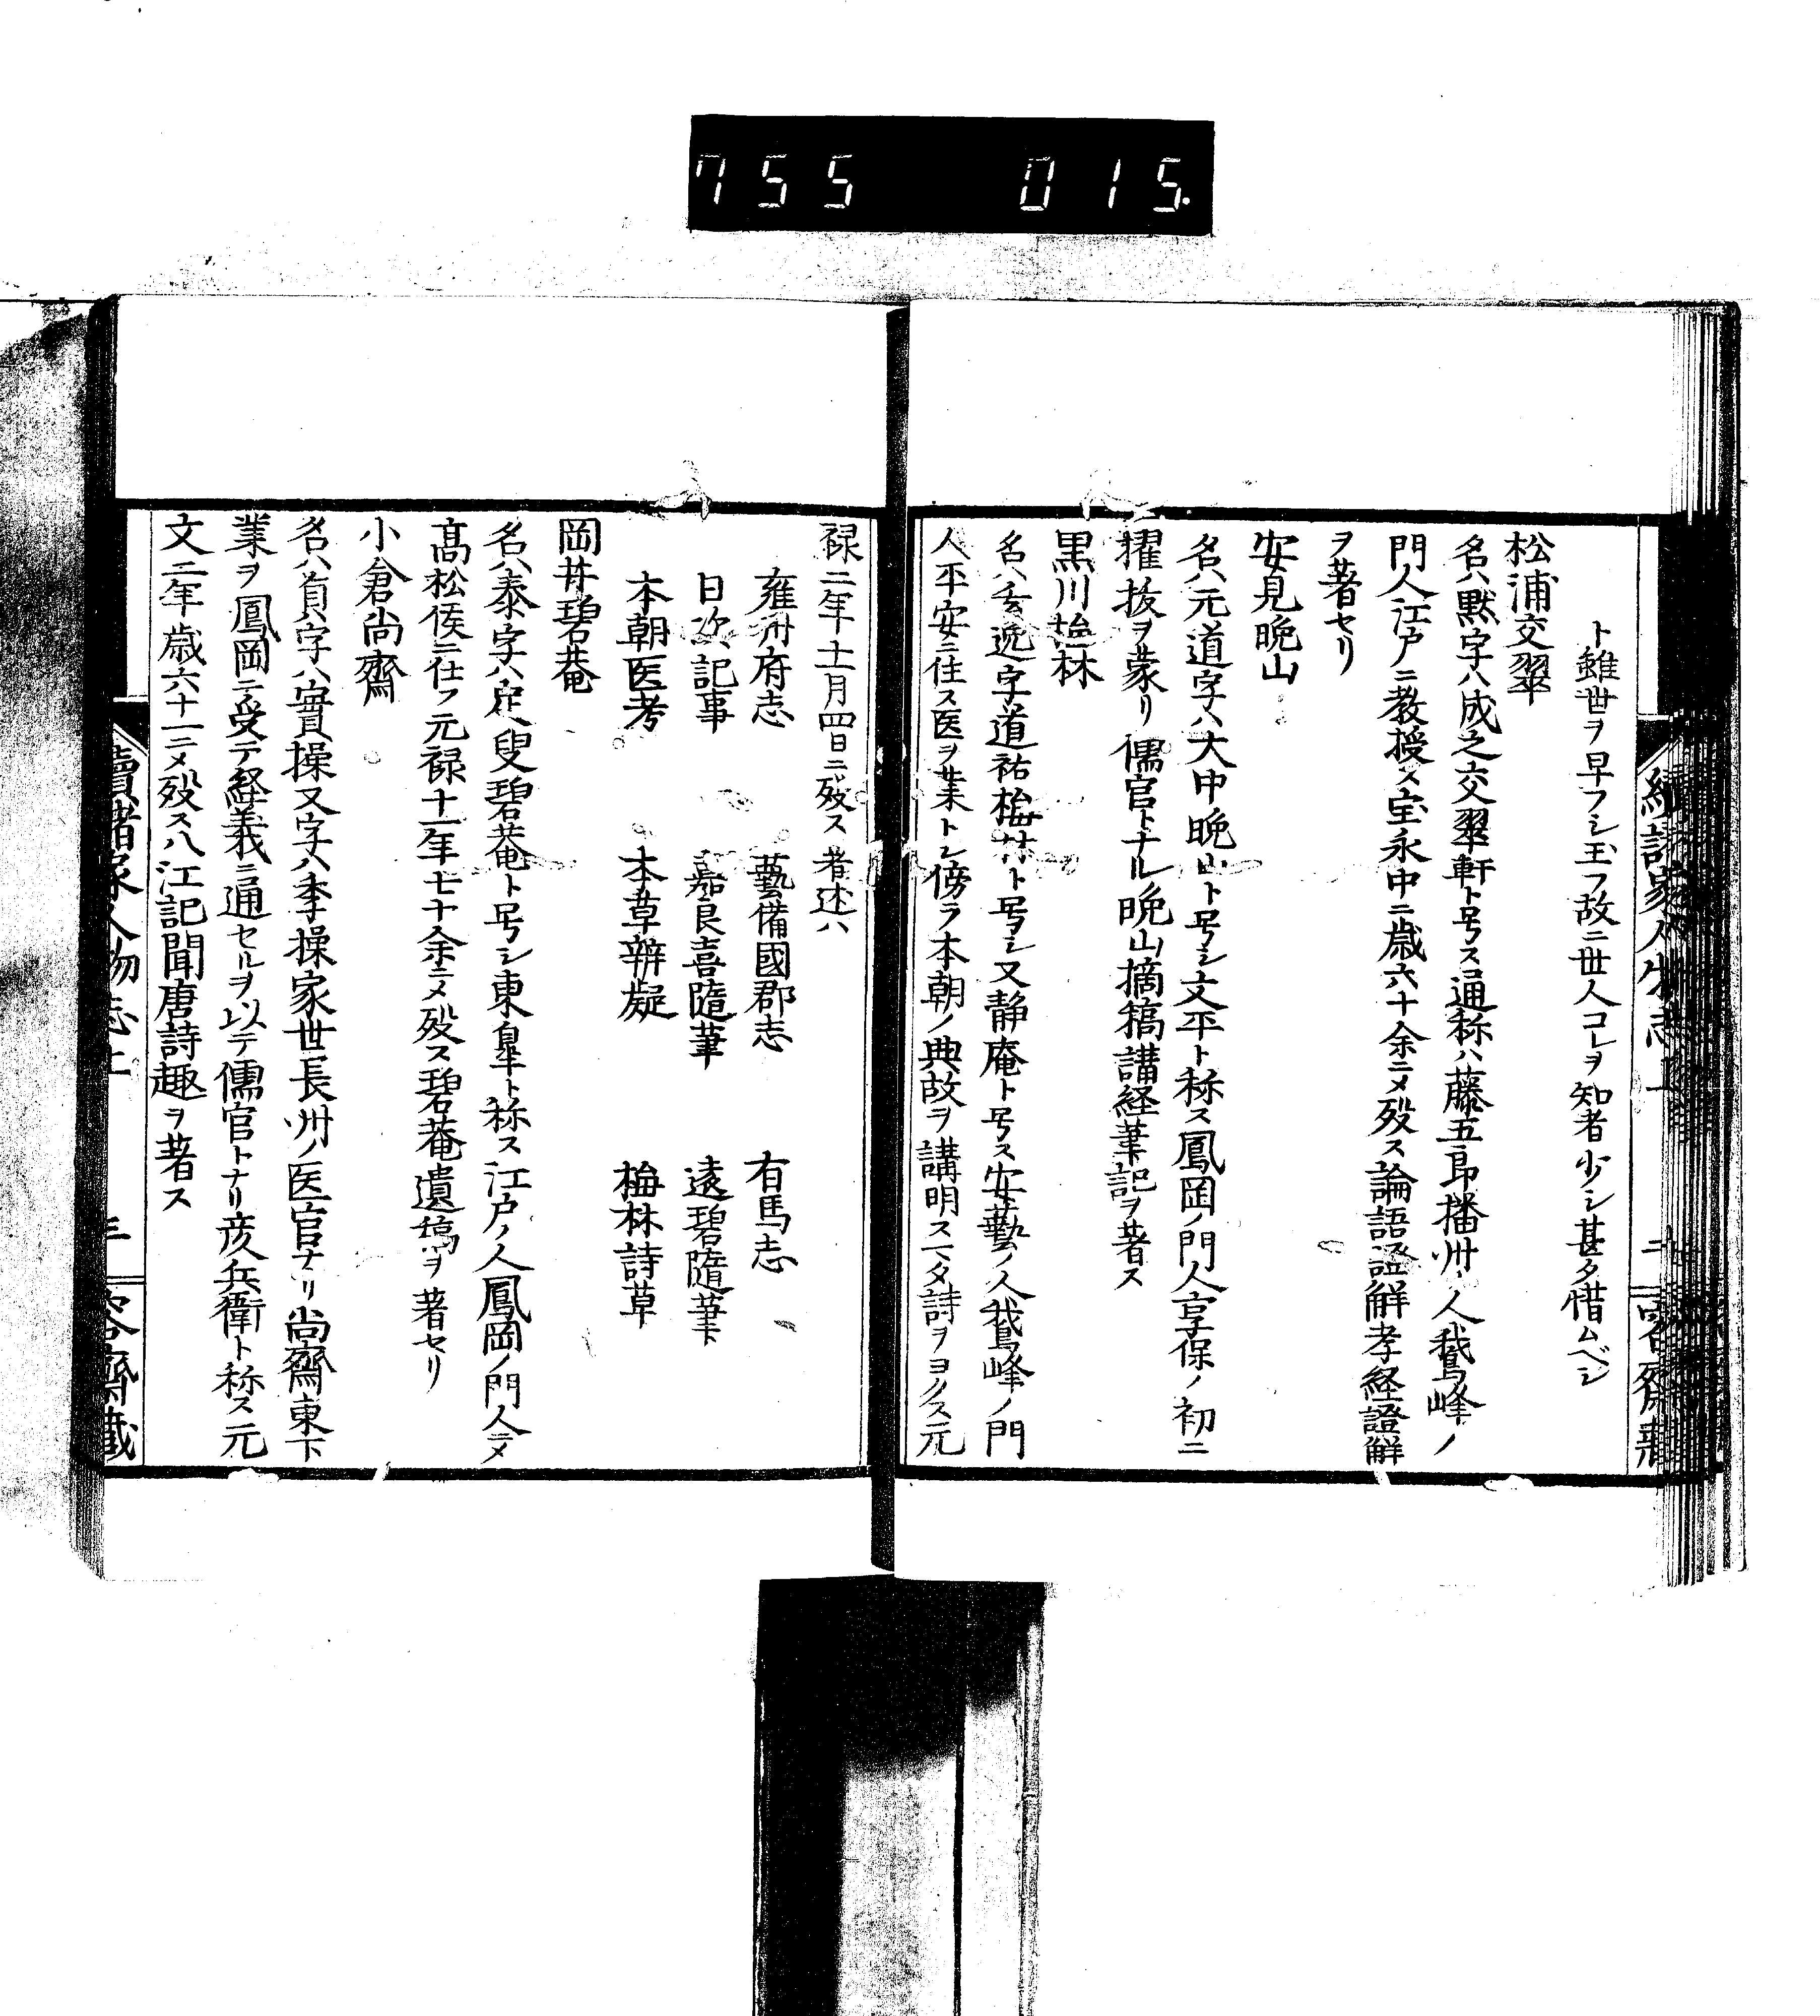 755 015.
ト雖世ヲ早フシ玉フ故ニ世人コレヲ知者少シ甚タ惜ムベシ
松浦交翠
名ハ默字ハ成之交翠軒ト号ス通称ハ藤五郎播州ノ人鵞峰ノ
門人江戸ニ教授ス宝永中ニ歳六十余ニメ歿ス論語證解孝経證解
ヲ著セリ
安見晩山
名ハ元道字ハ大中晩山ト号シ文平ト称ス鳳岡ノ門人享保ノ初ニ
擢抜ヲ蒙リ儒官トナル晩山摘稿講経筆記ヲ著ス
黒川梅林
名ハ玄逸字道祐梅林ト号シ又静庵ト号ス安藝ノ人鵞峰ノ門
人平安ニ住ス医ヲ業トシ傍ラ本朝ノ典故ヲ講明ス亦タ詩ヲヨクス元
禄二年十一月四日ニ歿ス著述ハ
雍州府志 藝備國郡志 有馬志
日次記事 嘉良喜随筆 遠碧随筆
本朝医考 本草辨疑 梅林詩草
岡井碧菴
名ハ泰字ハ定叟碧菴ト号シ東皐ト称ス江戸ノ人鳳岡ノ門人ニメ
高松侯ニ仕フ元禄十一年七十余ニメ歿ス碧菴遺稿ヲ著セリ
小倉尚齋
名ハ貞字ハ實操又字ハ季操家世長州ノ医官ナリ尚齋東下
業ヲ鳳岡ニ受テ経義ニ通セルヲ以テ儒官トナリ彦兵衛ト称ス元
文二年歳六十一ニメ歿ス八江記聞唐詩趣ヲ著ス
續諸家人物志上 三 容齋蔵